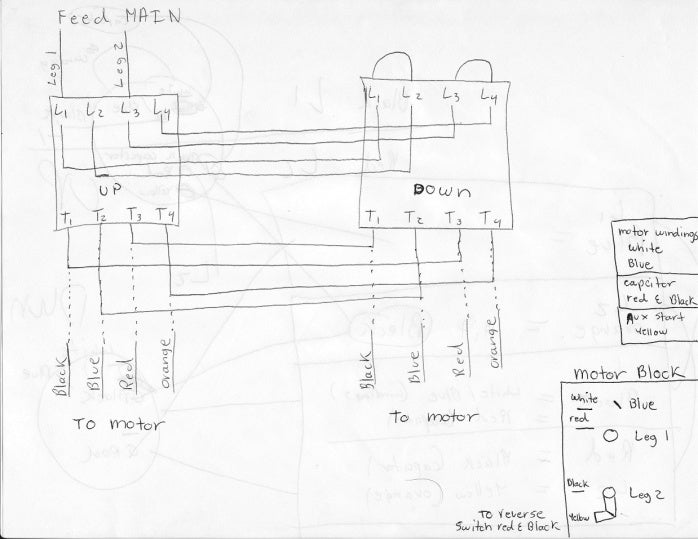 Feed MAIN
Leg 1
Leg 2
L1 L2 L3 L4
L1 L2 L3 L4
UP
DOWN
T1 T2 T3 T4
T1 T2 T3 T4
Black
Blue
Red
orange
Black
Blue
Red
orange
TO motor
To motor
motor windings
white
Blue
capcitor
red & Black
Aux start
Yellow
motor Block
white
Blue
red
Leg 1
Black
Leg 2
Yellow
TO reverse
Switch red & Black